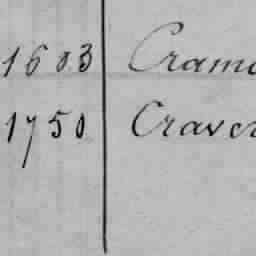 1603 Crame
1750 Craver